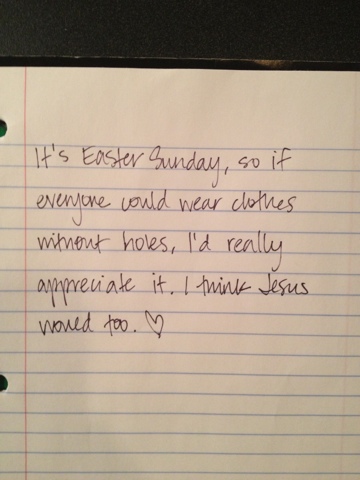 It's Easter Sunday, so if
everyone could wear clothes
without holes, I'd really
appreciate it. I think Jesus
would too. ♡